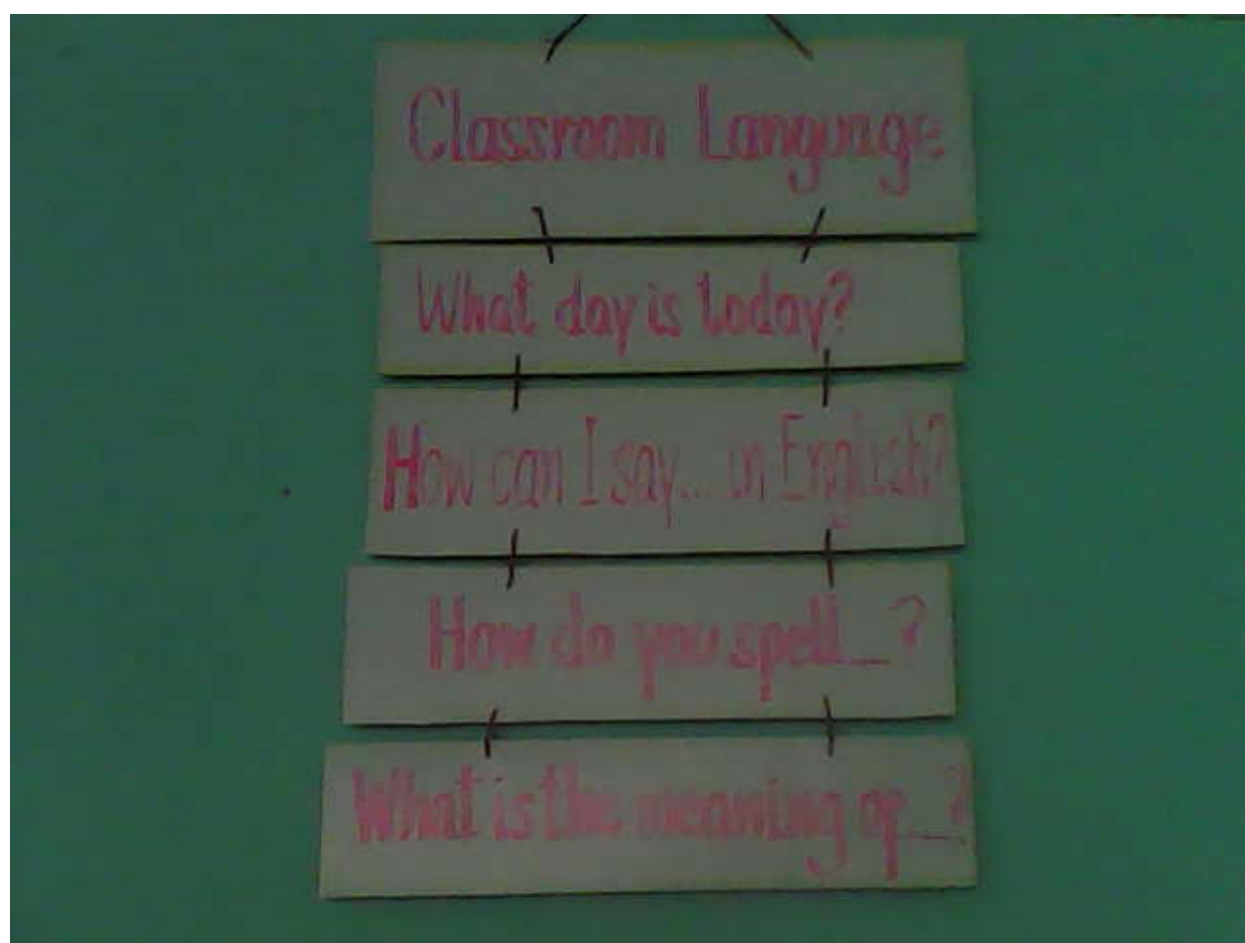 Classroom Language
What day is today?
How can I say... in English?
How do you spell__?
What is the meaning of__?